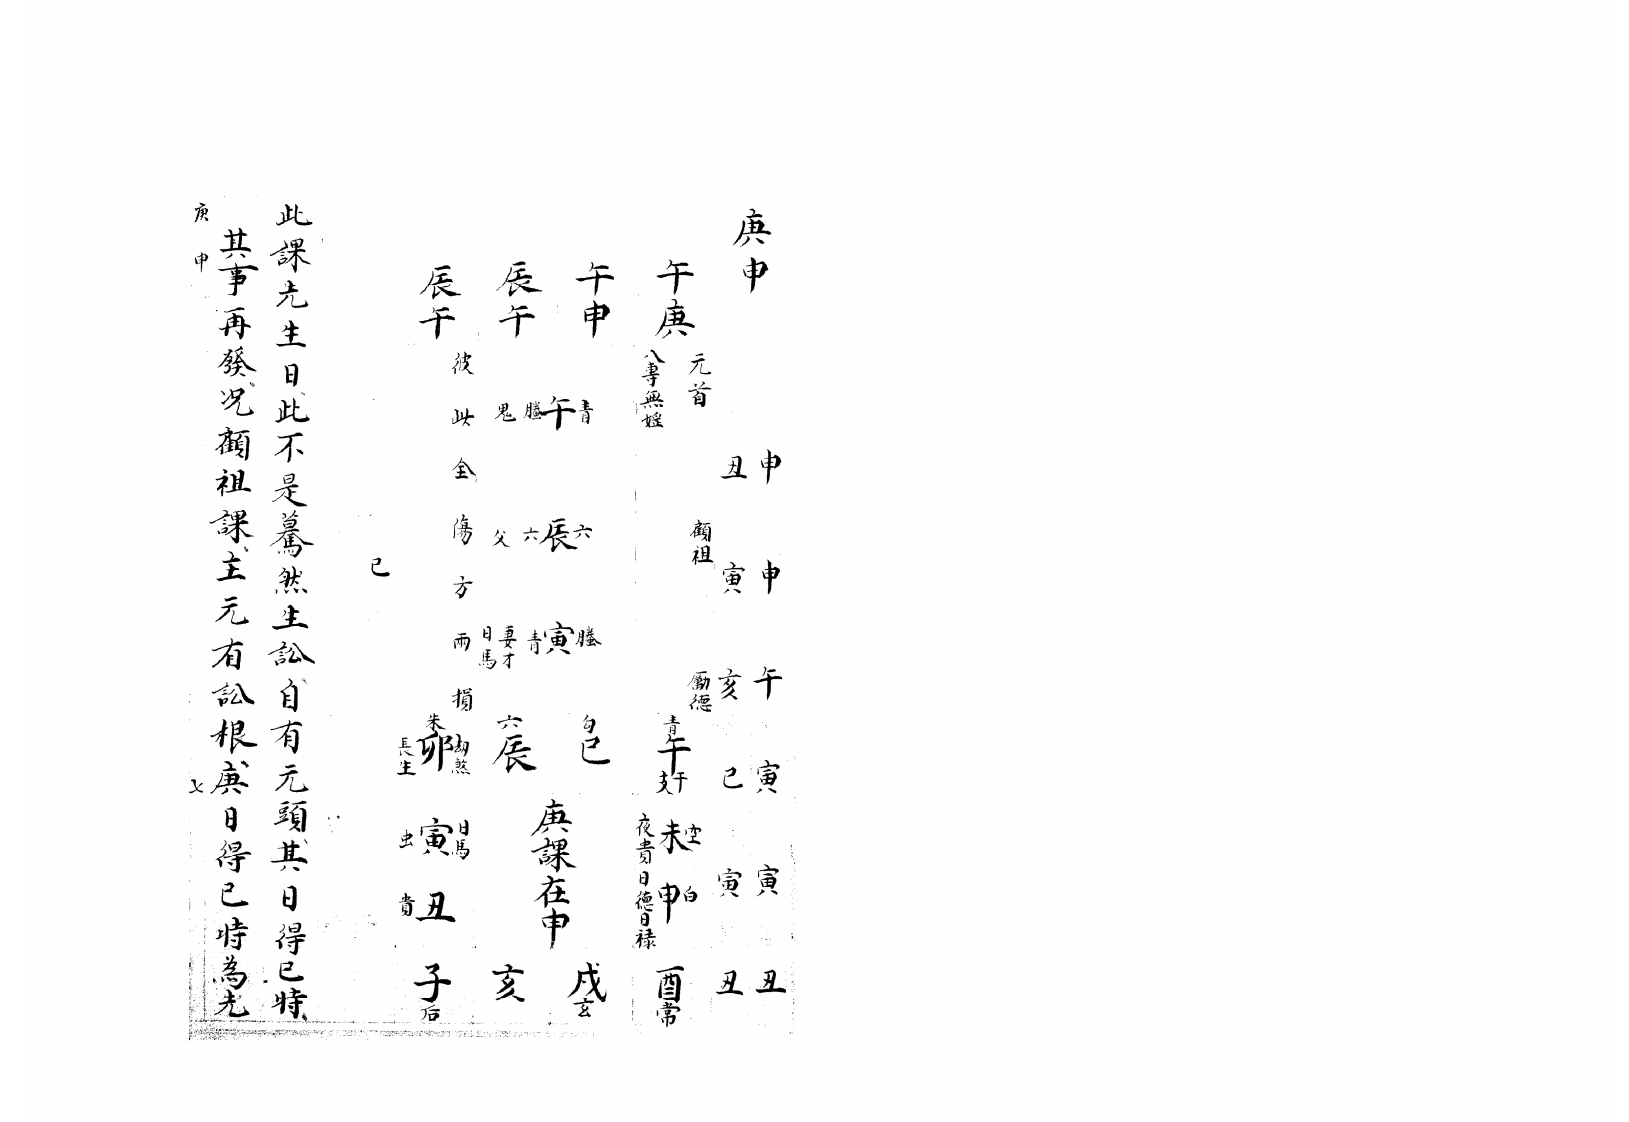 庚申
申申午寅寅丑
丑寅亥巳寅丑
元首 顧祖 勵德
午庚
八專無婬
午申
辰午
辰午
青午螣鬼
六辰六父
螣寅青妻才日馬
彼此全傷方兩損
青午干支
空未夜貴
白申日德日禄
酉常
勾巳
戌玄
六辰
亥
庚課在申
朱卯劫煞長生
日馬寅虫
丑貴
子后
己
此課先生日此不是驀然生訟自有元頭其日得巳時
其事再發况顧祖課主元有訟根庚日得巳時為先
庚申 七